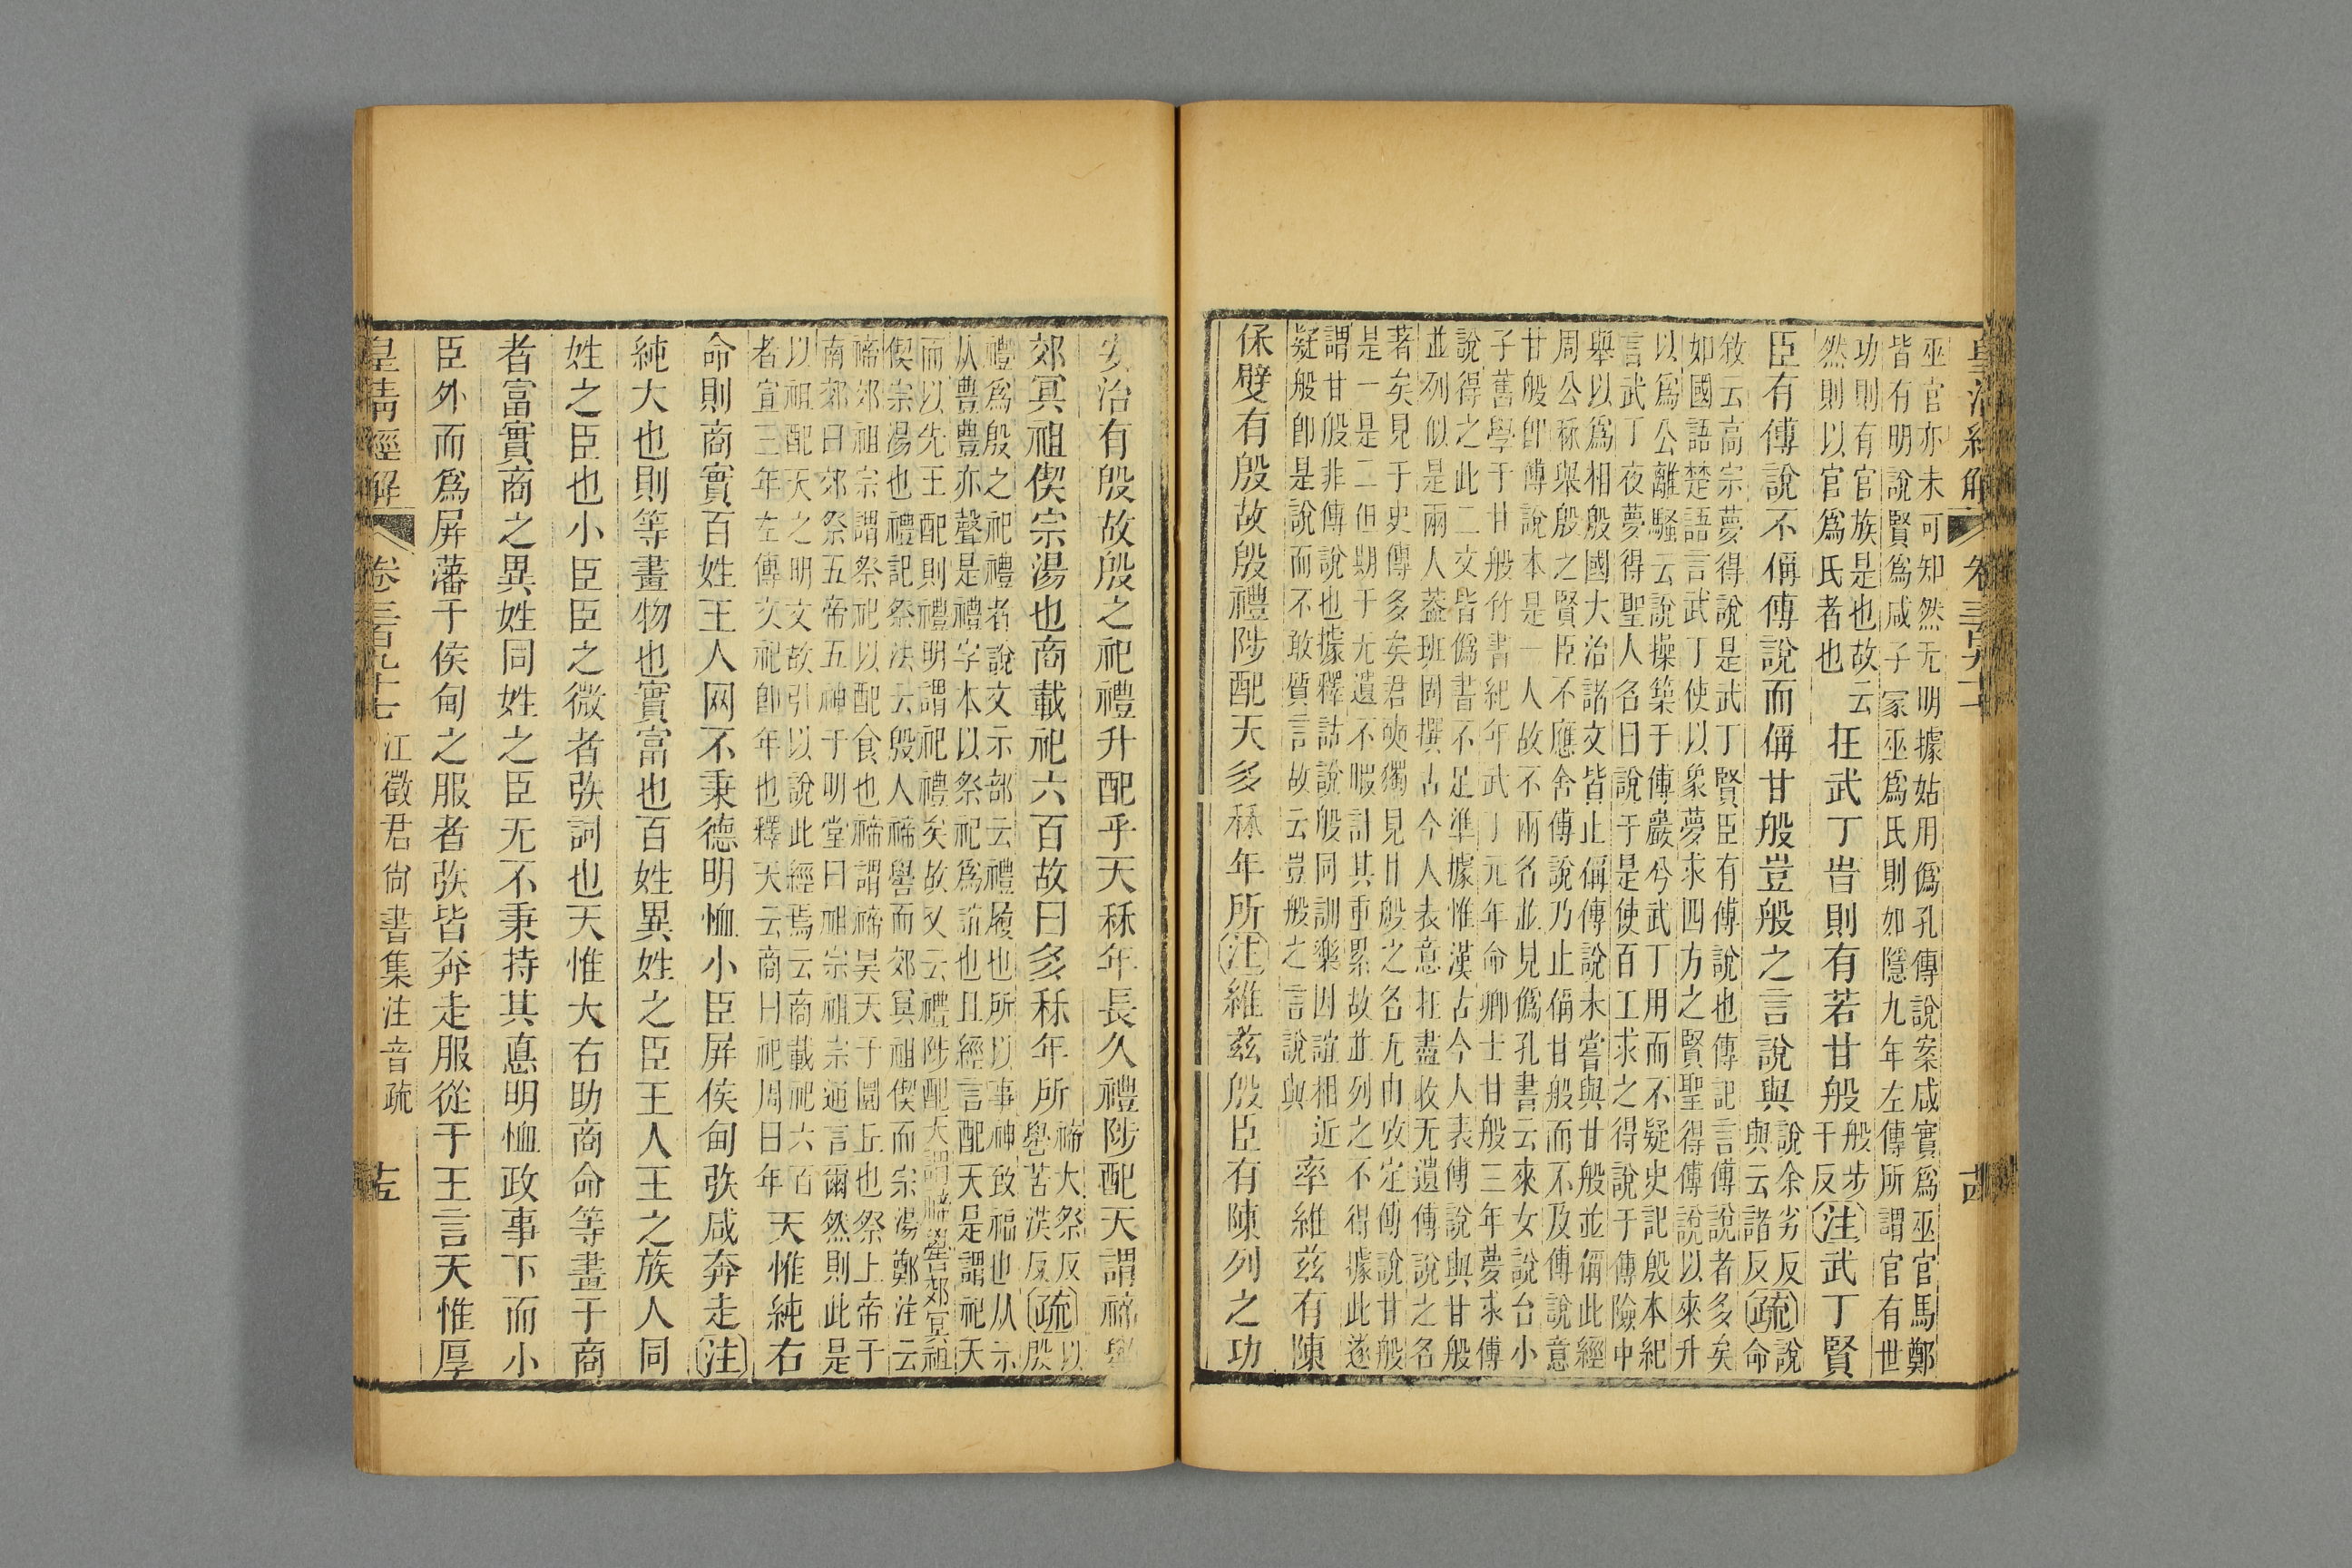 皇清經解
卷三百九十七
古
巫官亦未可知然无明據姑用僞孔傳說案咸實爲巫官馬鄭
皆有明說賢爲咸子冢巫爲氏則如隱九年左傳所謂官有世
功則有官族是也故云
然則以官爲氏者也
在武丁旹則有若甘般
般步
干反
注武丁賢
臣有傅說不偁傅說而偁甘般豈般之言說與
說余劣反
與云諸反
疏
說
命
敘云高宗夢得說是武丁賢臣有傅說也傳記言傅說者多矣
如國語楚語言武丁使以象夢求四方之賢聖得傅說以來升
以爲公離騷云說操築于傅巖兮武丁用而不疑史記殷本紀
言武丁夜夢得聖人名曰說于是使百工求之得說于傅險中
舉以爲相殷國大治諸文皆止偁傅說未嘗與甘般並偁此經
周公稱舉殷之賢臣不應舍傅說乃止偁甘般而不及傅說意
甘般卽傅說本是一人故不兩名並見僞孔書云來女說台小
子舊學于甘般竹書紀年武丁元年命卿士甘般三年夢求傅
說得之此二文皆僞書不足準據惟漢古今人表傅說與甘般
並列似是兩人葢班固撰古今人表意在盡收无遺傅說之名
著矣見于史傳多矣君奭獨見甘般之名无由攷定傅說甘般
是一是二但期于无遺不暇計其重累故並列之不得據此遂
謂甘般非傅說也據釋詁說般同訓樂因誼相近
疑般卽是說而不敢質言故云豈般之言說與
率維茲有陳
保躄有殷故殷禮陟配天多秝年所注維茲殷臣有陳列之功
安治有殷故殷之祀禮升配乎天秝年長久禮陟配天謂禘嚳
郊冥祖偰宗湯也商載祀六百故曰多秝年所
禘大祭反
嚳苦茣反
疏
以
殷
禮爲殷之祀禮者說文示部云禮履也所以事神致福也从示
从豊豊亦聲是禮字本以祭祀爲誼也且經言配天是謂祀天
而以先王配則禮明謂祀禮矣故又云禮陟配天謂禘嚳郊冥祖
偰宗湯也禮記祭法云殷人禘嚳而郊冥祖偰而宗湯鄭注云
禘郊祖宗謂祭祀以配食也禘謂禘昊天于圜丘也祭上帝于
南郊曰郊祭五帝五神于明堂曰祖宗祖宗通言爾然則此是
以祖配天之明文故引以說此經焉云商載祀六百
者宣三年左傳文祀卽年也釋天云商曰祀周曰年
天惟純右
命則商實百姓王人网不秉德明恤小臣屏侯甸㢮咸奔走注
純大也則等畫物也實富也百姓異姓之臣王人王之族人同
姓之臣也小臣臣之微者㢮詞也天惟大右助商命等畫于商
者富實商之異姓同姓之臣无不秉持其悳明恤政事下而小
臣外而爲屏藩于侯甸之服者㢮皆奔走服從于王言天惟厚
皇清經解
卷三百九十七
江徵君尙書集注音疏
十五